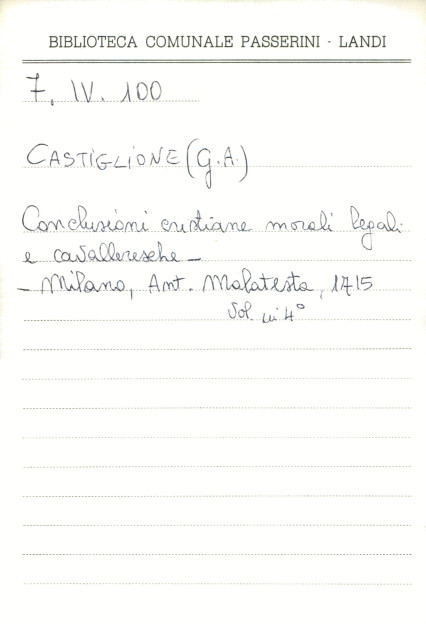 BIBLIOTECA COMUNALE PASSERINI - LANDI
7. IV. 100
CASTIGLIONE (G.A.)
Conclusioni cristiane morali legali
e cavalleresche -
- Milano, Ant. Malatesta, 1715
Vol. in 4°